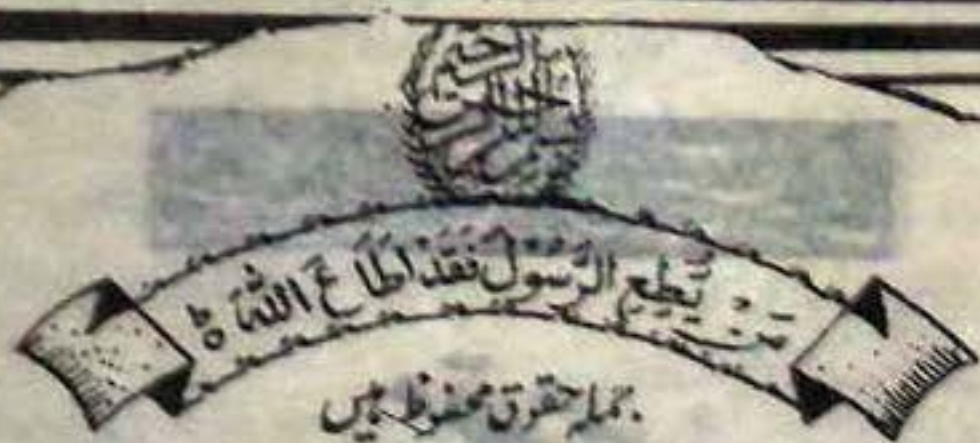 بسم اللہ الرحمن الرحیم
مَنْ یُّطِعِ الرَّسُوْلَ فَقَدْ اَطَاعَ اللّٰہَ ط
جملہ حقوق محفوظ ہیں